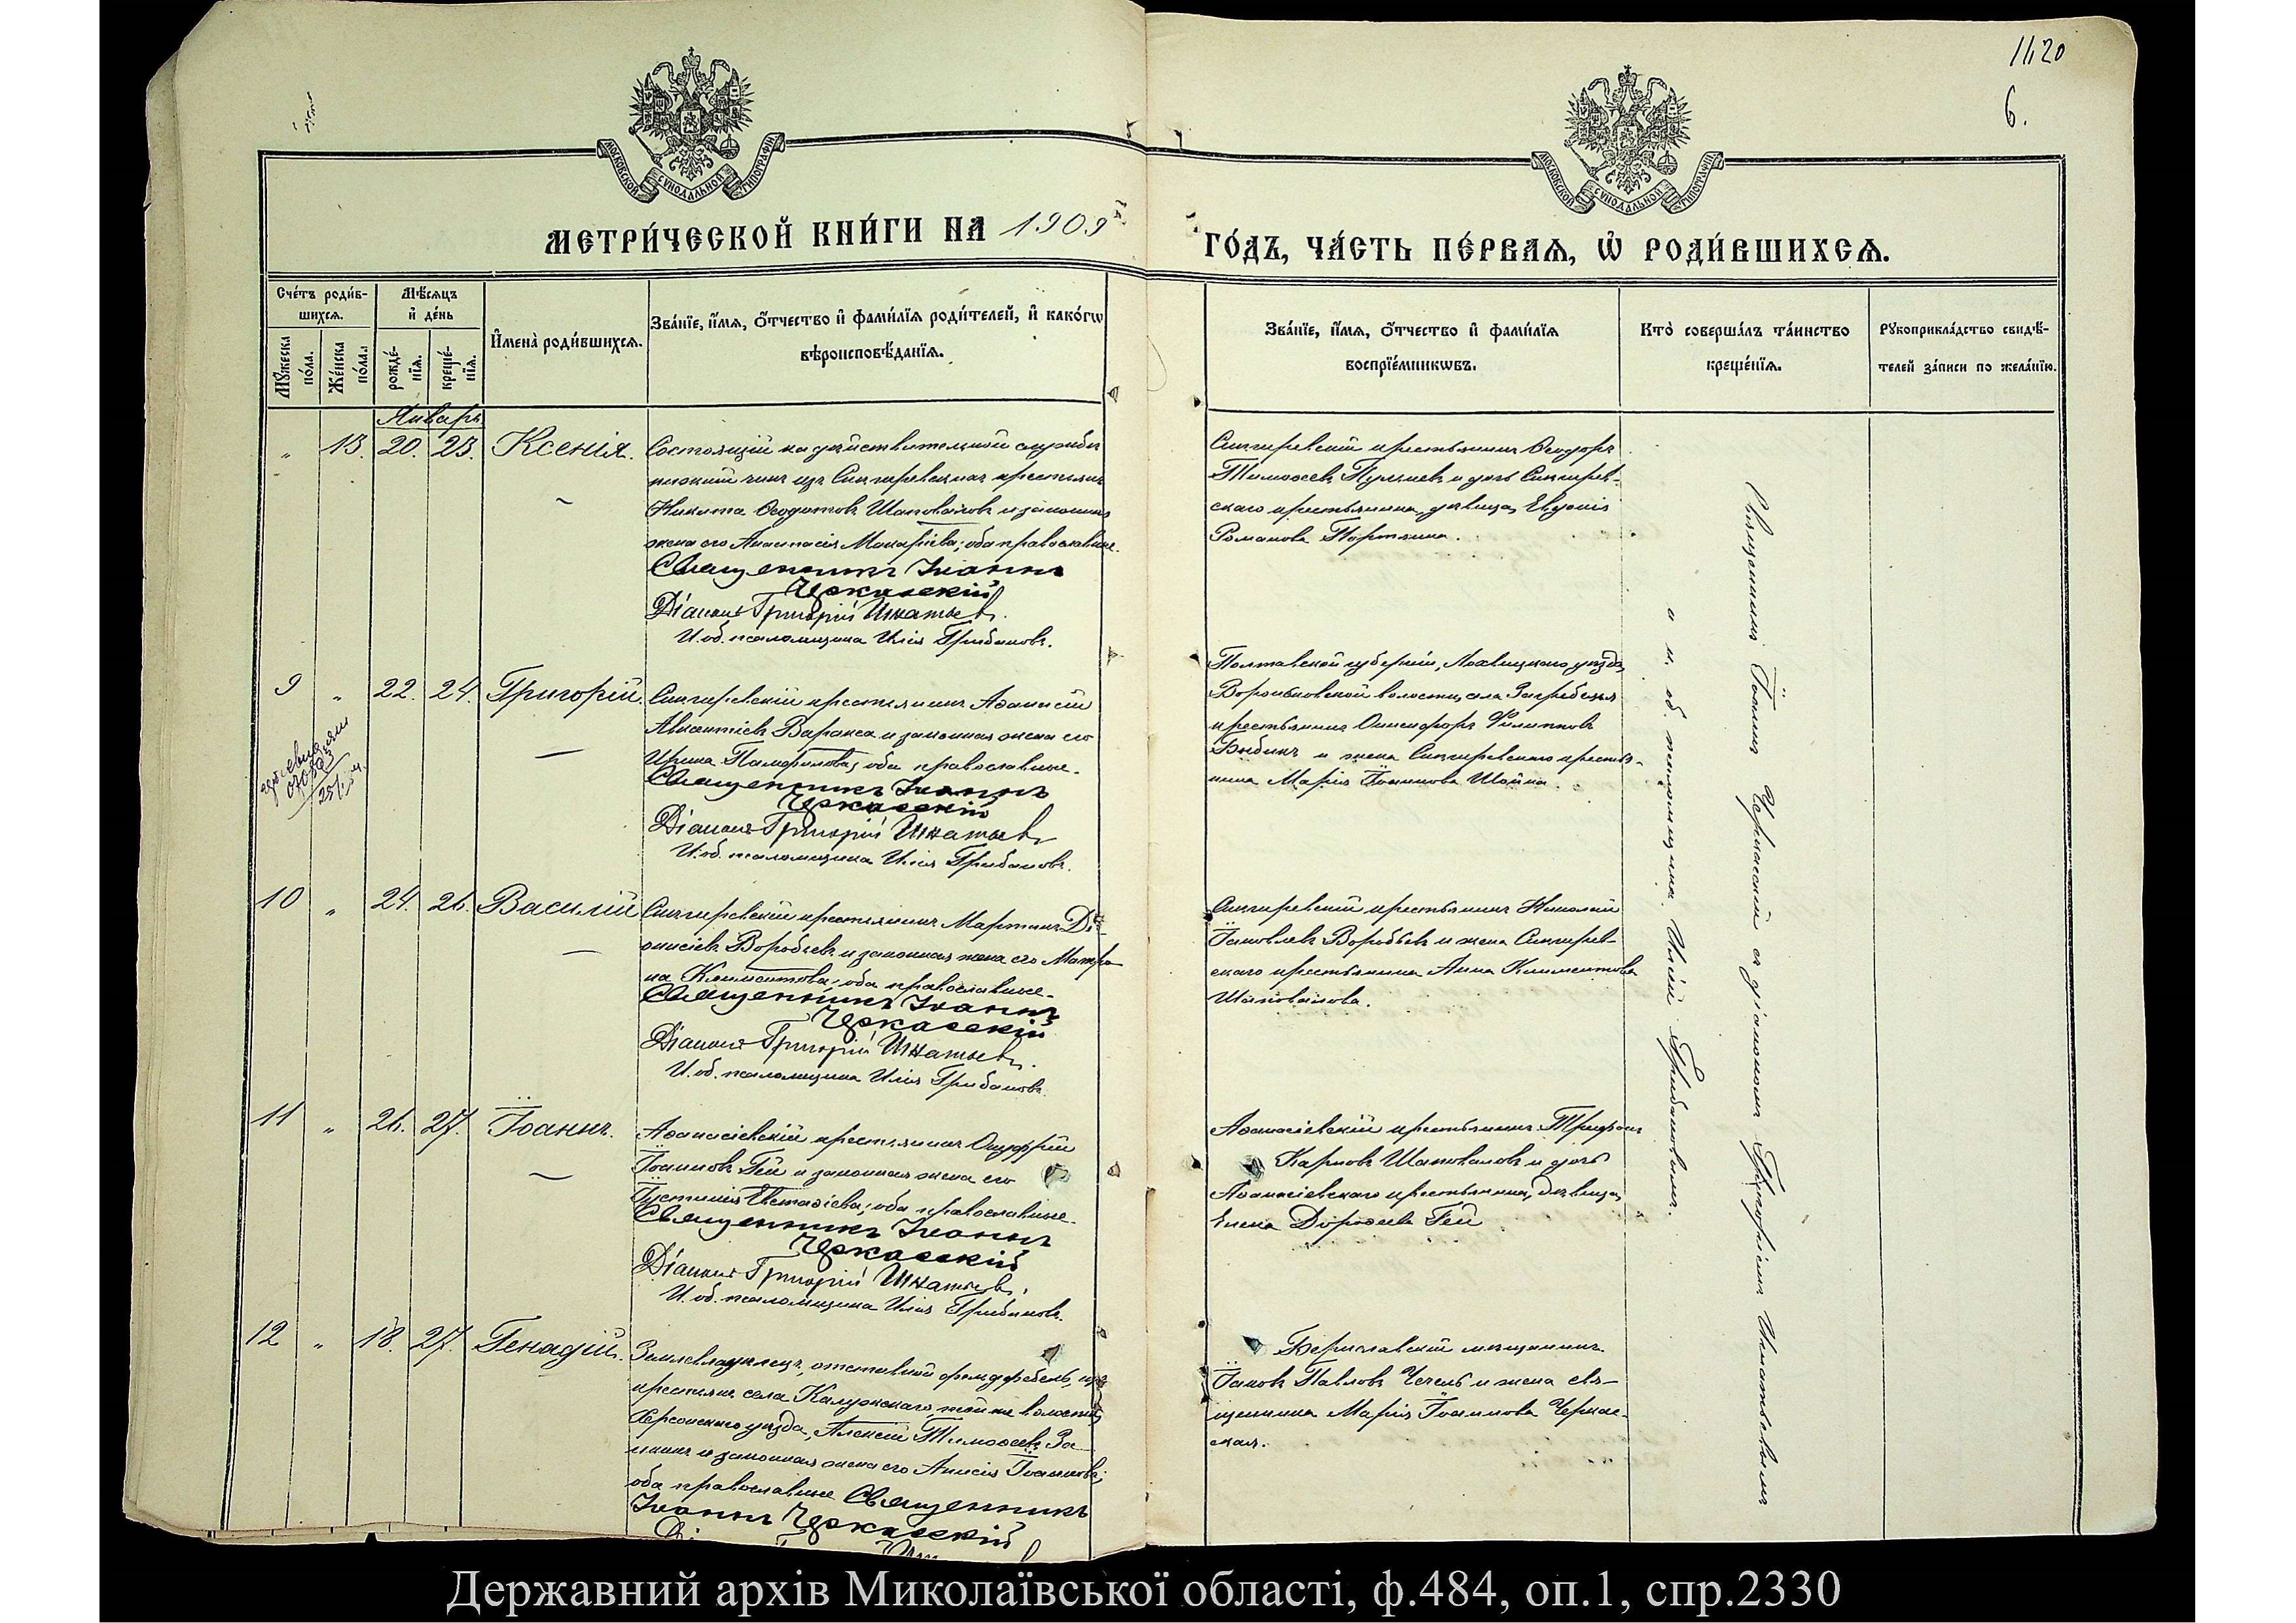 1120
6.
МОСКОВСКОЙ СѴНОДАЛЬНОЙ ТИПОГРАФІИ
МОСКОВСКОЙ СѴНОДАЛЬНОЙ ТИПОГРАФІИ
МЕТРИ́ЧЕСКОЙ КНИ́ГИ НА 1909
ГО́ДЪ, ЧА́СТЬ ПЕ́РВАѦ, Ѡ҆ РОДИ́ВШИХСѦ.
Сче́тъ роди́в-
шихсѧ.
Мꙋ́жеска по́ла.
Же́нска по́ла.
Мѣ́сѧцъ
и҆ де́нь
рожде́-
нїѧ.
креще́-
нїѧ.
И҆мена̀ роди́вшихсѧ.
Зва́нїе, и҆́мѧ, ѻ҆́тчество и҆ фами́лїѧ роди́телей, и҆ како́гѡ
вѣроисповѣ́данїѧ.
Зва́нїе, и҆́мѧ, ѻ҆́тчество и҆ фами́лїѧ
воспрїе́мникѡвъ.
Кто̀ соверша́лъ та́инство
креще́нїѧ.
Рꙋкоприкла́дство свидѣ́-
телей за́писи по жела́нїю.
Январь
" 13. 20. 23. Ксенія.
Состоящій на дѣйствительной службѣ
нижній чинъ изъ Снигиревскихъ крестьянъ
Никита Ѳеодотовъ Шаповаловъ и законная
жена его Анастасія Макаріева; оба православные.
Священникъ Іоаннъ
Черкасскій
Діаконъ Григорій Игнатьевъ.
И. об. псаломщика Илія Грибановъ.
Снигиревскій крестьянинъ Ѳеодоръ
Тимоѳеевъ и дочь Снигирев-
скаго крестьянина, дѣвица, Евдокія
Романова Портянка.
9 " 22. 24. Григорій.
Снигиревскій крестьянинъ Аѳанасій
Авксентіевъ Варакса и законная жена его
Ирина Памфилова; оба православные.
Священникъ Іоаннъ
Черкасскій
Діаконъ Григорій Игнатьевъ
И. об. псаломщика Илія Грибановъ.
Полтавской губерніи, Лохвицкаго уѣзда,
Вороньковской волости, села Загребелья
крестьянинъ Онисифоръ Филипповъ
и жена Снигиревскаго крестья-
нина Марія Іоаннова Шейка.
10 " 24. 26. Василій
Снигиревскій крестьянинъ Мартинъ Ді-
онисіевъ Воробьевъ и законная жена его Матро-
на Климентова; оба православные.
Священникъ Іоаннъ
Черкасскій
Діаконъ Григорій Игнатьевъ.
И. об. псаломщика Илія Грибановъ.
Снигиревскій крестьянинъ Николай
Іаковлевъ Воробьевъ и жена Снигирев-
скаго крестьянина Анна Климентова
Шаповалова.
11 " 26. 27. Іоаннъ.
Аѳанасіевскій крестьянинъ Онуфрій
Іоанновъ Гей и законная жена его
Іустинія Евстаѳіева; оба православные.
Священникъ Іоаннъ
Черкасскій
Діаконъ Григорій Игнатьевъ.
И. об. псаломщика Илія Грибановъ.
Аѳанасіевскій крестьянинъ Трифонъ
Карповъ Шаповаловъ и дочь
Аѳанасіевскаго крестьянина, дѣвица,
Елена Дороѳеева Гей
12 " 18. 27. Генадій.
Землевладѣлецъ, отставной фельдфебель, изъ
крестьянъ села Калужскаго, той же волости,
Херсонскаго уѣзда, Алексій Тимоѳеевъ За-
и законная жена его Анисія Іоаннова;
оба православные Священникъ
Іоаннъ Черкасскій
Бериславскій мѣщанинъ
Іаковъ Павловъ Чечель и жена свя-
щенника Марія Іоаннова Черкас-
ская.
Священникъ Іоаннъ Черкасскій съ діакономъ Григоріемъ Игнатьевымъ
и и. об. псаломщика Иліей Грибановымъ.
Державний архів Миколаївської області, ф.484, оп.1, спр.2330